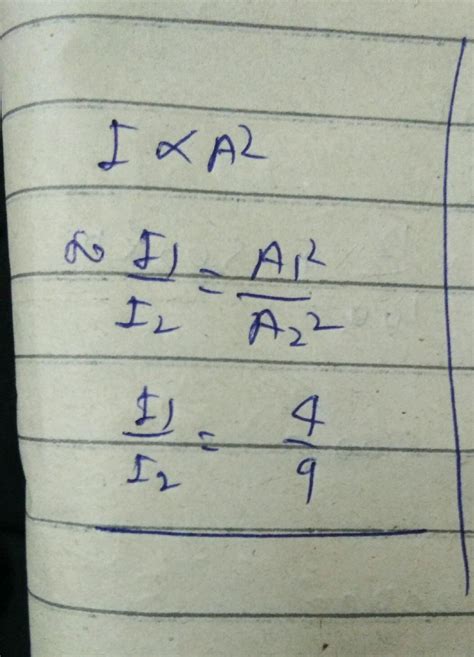 I ∝ A²
∞ I₁/I₂ = A₁²/A₂²
I₁/I₂ = 4/9